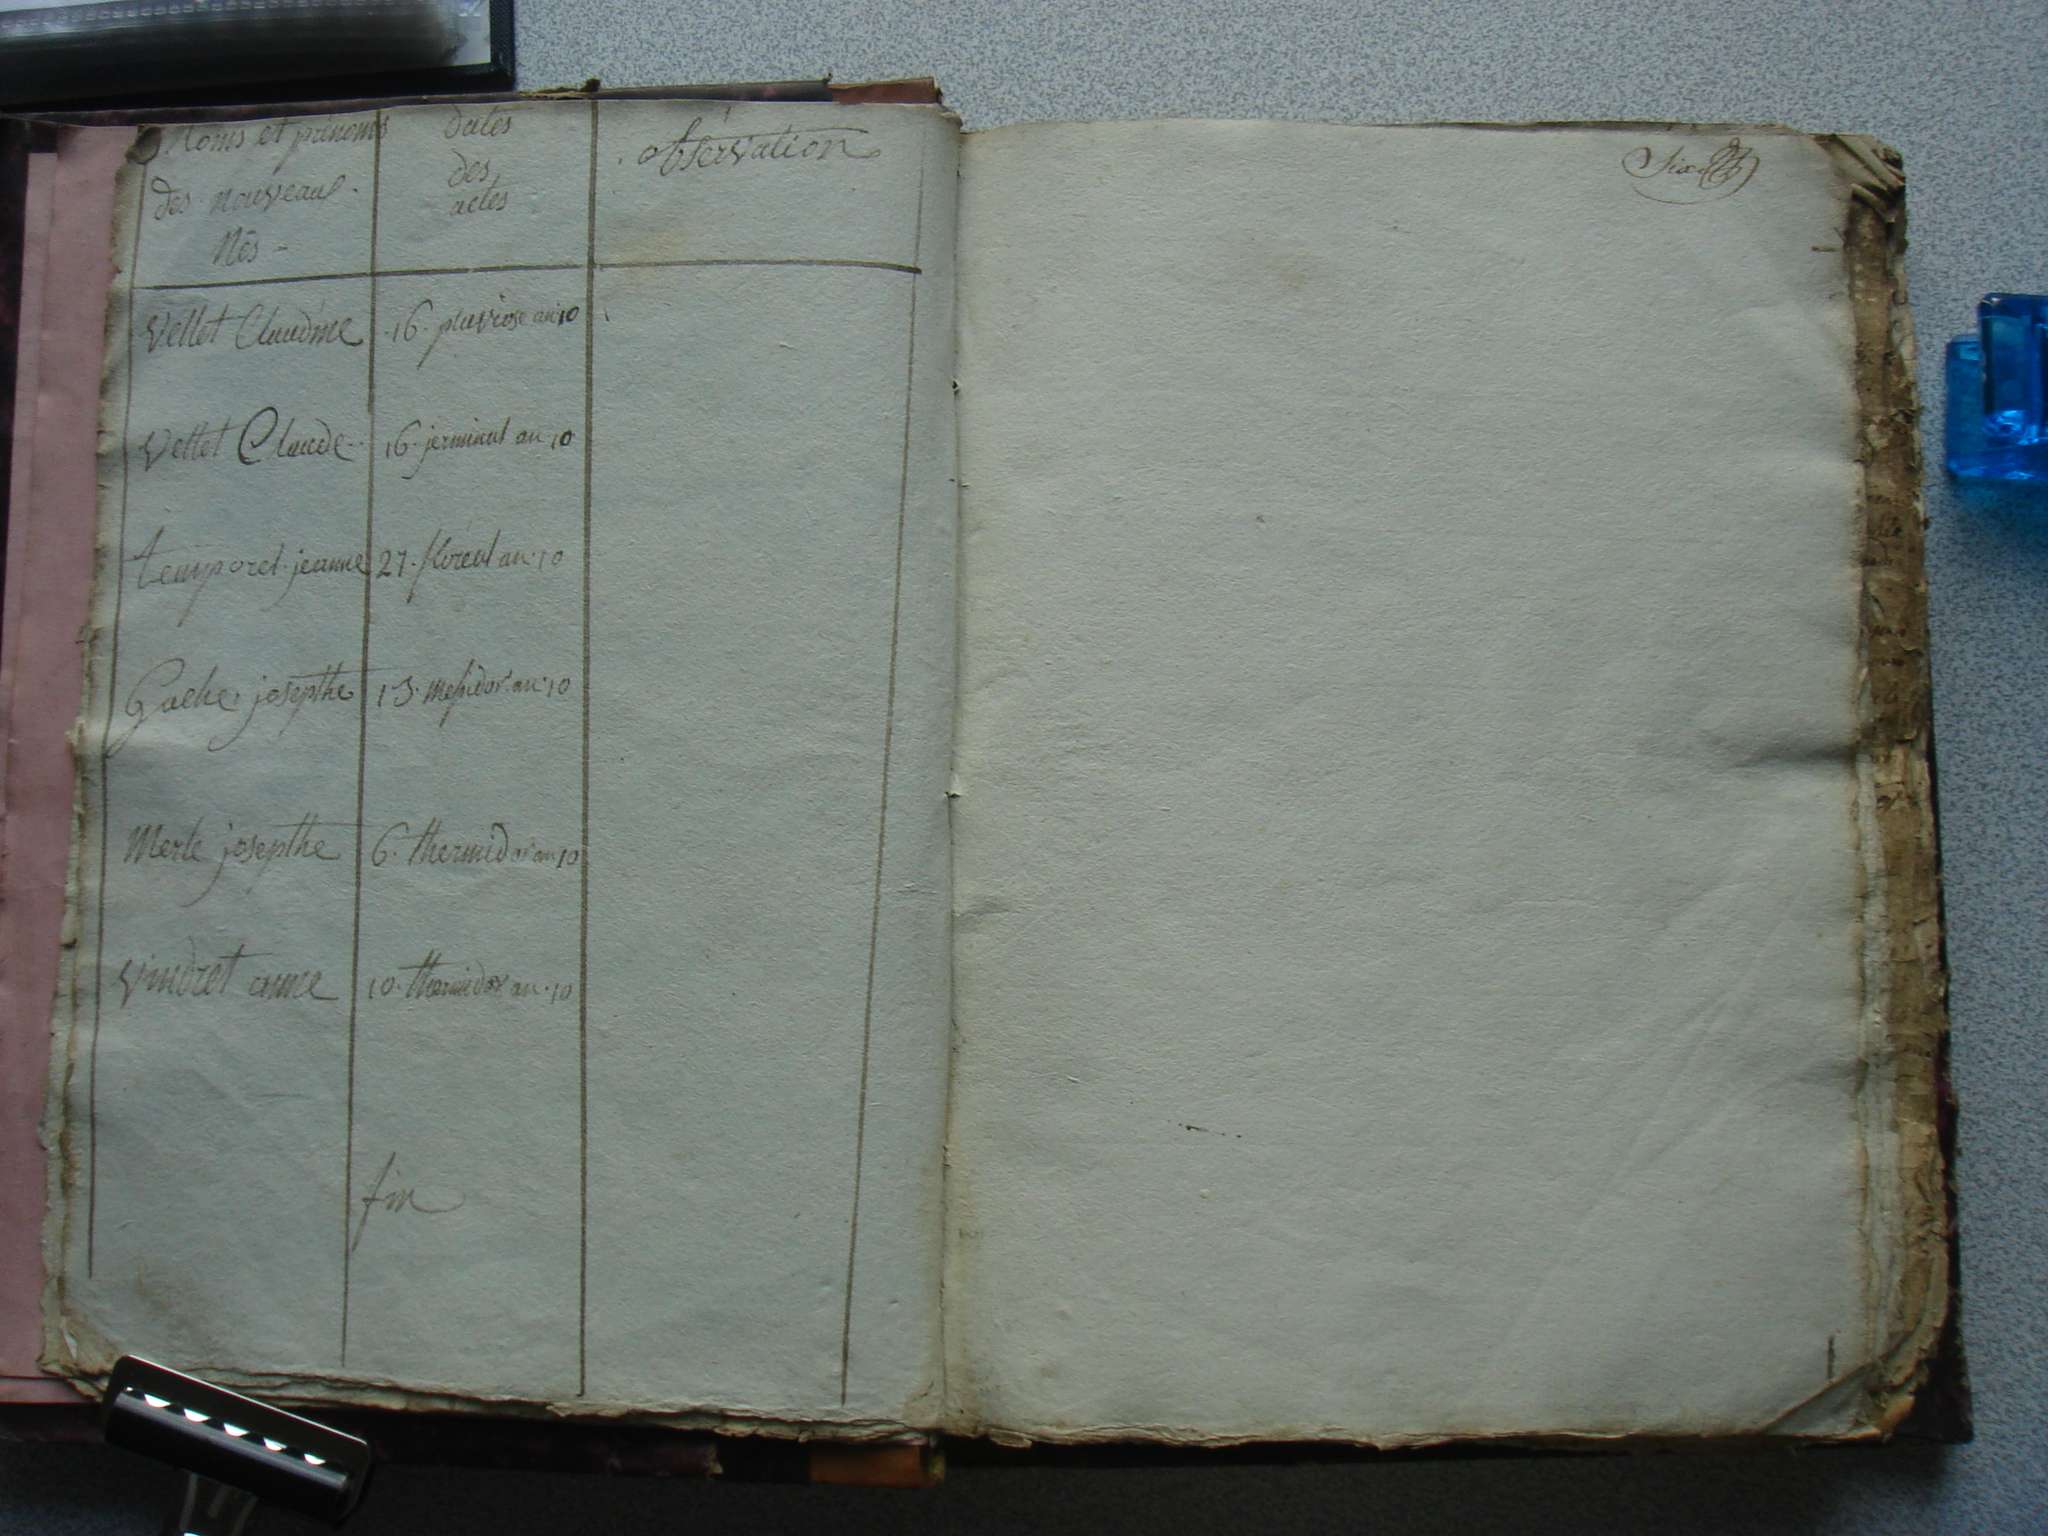 Noms et prénoms
des nouveaux
Nés -
dates
des
actes
observation
Vellet Claudine 16 pluviose an 10
Vellet Claude 16 jerminal an 10
temporel jeanne 27 floreal an 10
Gache josepthe 13 Messidor an 10
Merle josepthe 6 thermidor an 10
Vindret anne 10 thermidor an 10
fin